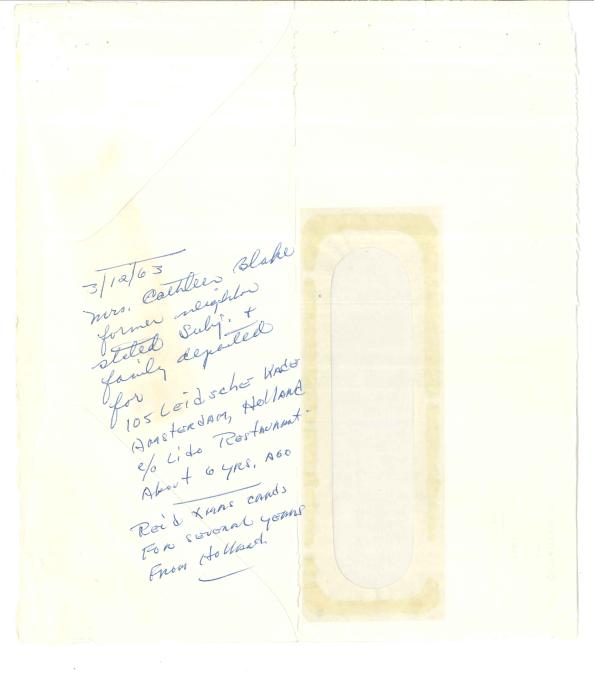 3/12/63
Mrs. Cathleen Blake
former neighbor
stated Subj. +
family departed
for
105 Leidsche Kade
Amsterdam, Holland
c/o Lido Restaurant.
About 6 yrs. ago
Rec'd Xmas cards
For several years
From Holland.